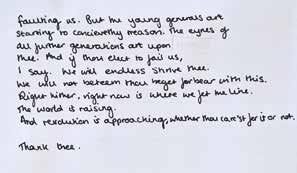 faulting us. But the young generals are
starting to concievthy treason. The eynes of
all further generations are upon
thee. And if thou elect to fail us,
I say. We will endless shrive thee.
We will not beteem thou beget forbear with this.
Right hither, right now is where we jet the line.
The world is raising.
And revolution is approaching, whether thou care'st for it or not.
Thank thee.